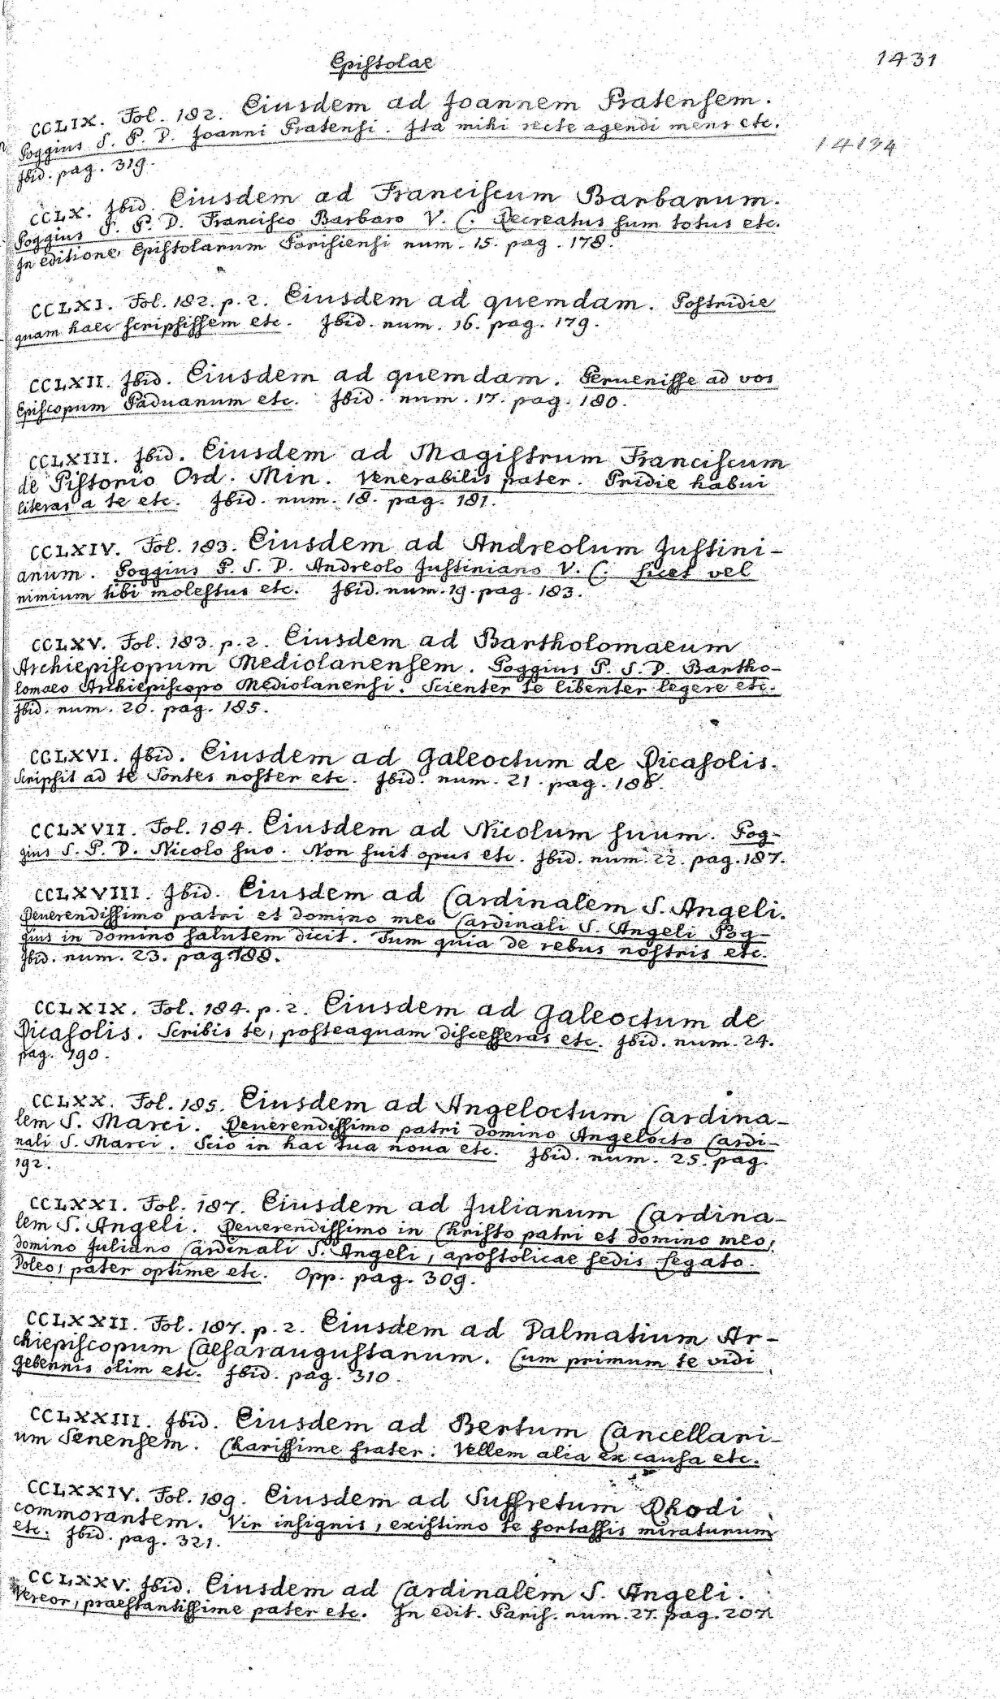 Epistolae
1431
CCLIX. Fol. 182. Eiusdem ad Joannem Pratensem.
Poggius S. P. D. Joanni Pratensi. Ita mihi recte agendi mens etc.
14134
Ibid. pag. 319.
CCLX. Ibid. Eiusdem ad Franciscum Barbarum.
Poggius P. P. D. Francisco Barbaro V. C. Recreatus sum totus etc.
In editione Epistolarum Parisiensi num. 15. pag. 178.
CCLXI. Fol. 182. p. 2. Eiusdem ad quemdam. Postridie
quam haec scripsissem etc. Ibid. num. 16. pag. 179.
CCLXII. Ibid. Eiusdem ad quemdam. Peruenisse ad vos
Episcopum Paduanum etc. Ibid. num. 17. pag. 180.
CCLXIII. Ibid. Eiusdem ad Magistrum Franciscum
de Pistorio Ord. Min. Venerabilis pater. Pridie habui
literas a te etc. Ibid. num. 18. pag. 181.
CCLXIV. Fol. 183. Eiusdem ad Andreolum Justini-
anum. Poggius P. S. D. Andreolo Justiniano V. C. Licet vel
nimium tibi molestus etc. Ibid. num. 19. pag. 183.
CCLXV. Fol. 183. p. 2. Eiusdem ad Bartholomaeum
Archiepiscopum Mediolanensem. Poggius P. S. D. Bartho-
lomaeo Archiepiscopo Mediolanensi. Scienter te libenter legere etc.
Ibid. num. 20. pag. 185.
CCLXVI. Ibid. Eiusdem ad Galeoctum de Ricasolis.
Scripsit ad te Pontes noster etc. Ibid. num. 21. pag. 186.
CCLXVII. Fol. 184. Eiusdem ad Nicolum suum. Pog-
gius S. P. D. Nicolo suo. Non fuit opus etc. Ibid. num. 22. pag. 187.
CCLXVIII. Ibid. Eiusdem ad Cardinalem S. Angeli.
Reuerendissimo patri et domino meo Cardinali S. Angeli Pog-
gius in domino salutem dicit. Tum quia de rebus nostris etc.
Ibid. num. 23. pag. 188.
CCLXIX. Fol. 184. p. 2. Eiusdem ad Galeoctum de
Ricasolis. Scribis te, posteaquam discesseras etc. Ibid. num. 24.
pag. 190.
CCLXX. Fol. 185. Eiusdem ad Angeloctum Cardina-
lem S. Marci. Reuerendissimo patri domino Angelocto Cardi-
nali S. Marci. Scio in hac tua noua etc. Ibid. num. 25. pag.
192.
CCLXXI. Fol. 187. Eiusdem ad Julianum Cardina-
lem S. Angeli. Reuerendissimo in Christo patri et domino meo,
domino Juliano Cardinali S. Angeli, apostolicae sedis Legato.
Doleo, pater optime etc. Opp. pag. 309.
CCLXXII. Fol. 187. p. 2. Eiusdem ad Dalmatium Ar-
chiepiscopum Caesaraugustanum. Cum primum te vidi
Gebennis olim etc. Ibid. pag. 310.
CCLXXIII. Ibid. Eiusdem ad Bertum Cancellari-
um Senensem. Charissime frater. Vellem alia ex causa etc.
CCLXXIV. Fol. 189. Eiusdem ad Suffretum Rhodi
commorantem. Vir insignis, existimo te fortassis miraturum
etc. Ibid. pag. 321.
CCLXXV. Ibid. Eiusdem ad Cardinalem S. Angeli.
Vereor, praestantissime pater etc. In edit. Paris. num. 27. pag. 207.